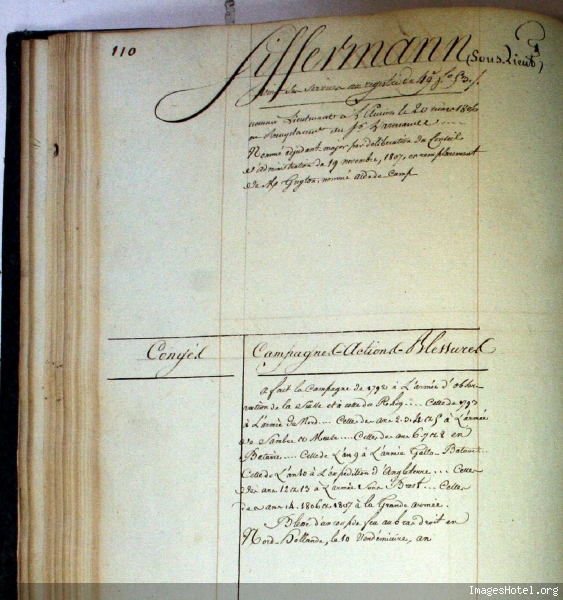 110
Siffermann (Sous-Lieut)
au registre du 49e
nommé Lieutenant à le 20 1806
en remplacement du Sr
Nommé adjudant major par deliberation du Conseil
d'administration du 19 novembre, 1807, en remplacement
de Mr Guyton, nommé aide de camp
Congés
Campagnes-Actions-Blessures
a fait la Campagne de 1792 à L'armée d'obser-
vation de la et à celle du .... Celle de 1793
à L'armée du Nord.... Celles des ans 2. 3. 4 et 5 à L'armée
de Sambre et Meuse.... Celles des ans 6. 7 et 8 en
Batavie.... Celle de L'an 9 à L'armée Gallo-Batave..
Celle de L'an 10 à L'expédition d'Angleterre... Celles
des ans 12 et 13 à L'armée sous Brest... Celles
des ans 14. 1806 et 1807 à la Grande armée.
Blessé d'un coup de feu au bras droit en
Nord-hollande, le 10 Vendémiaire, an
ImagesHotel.org